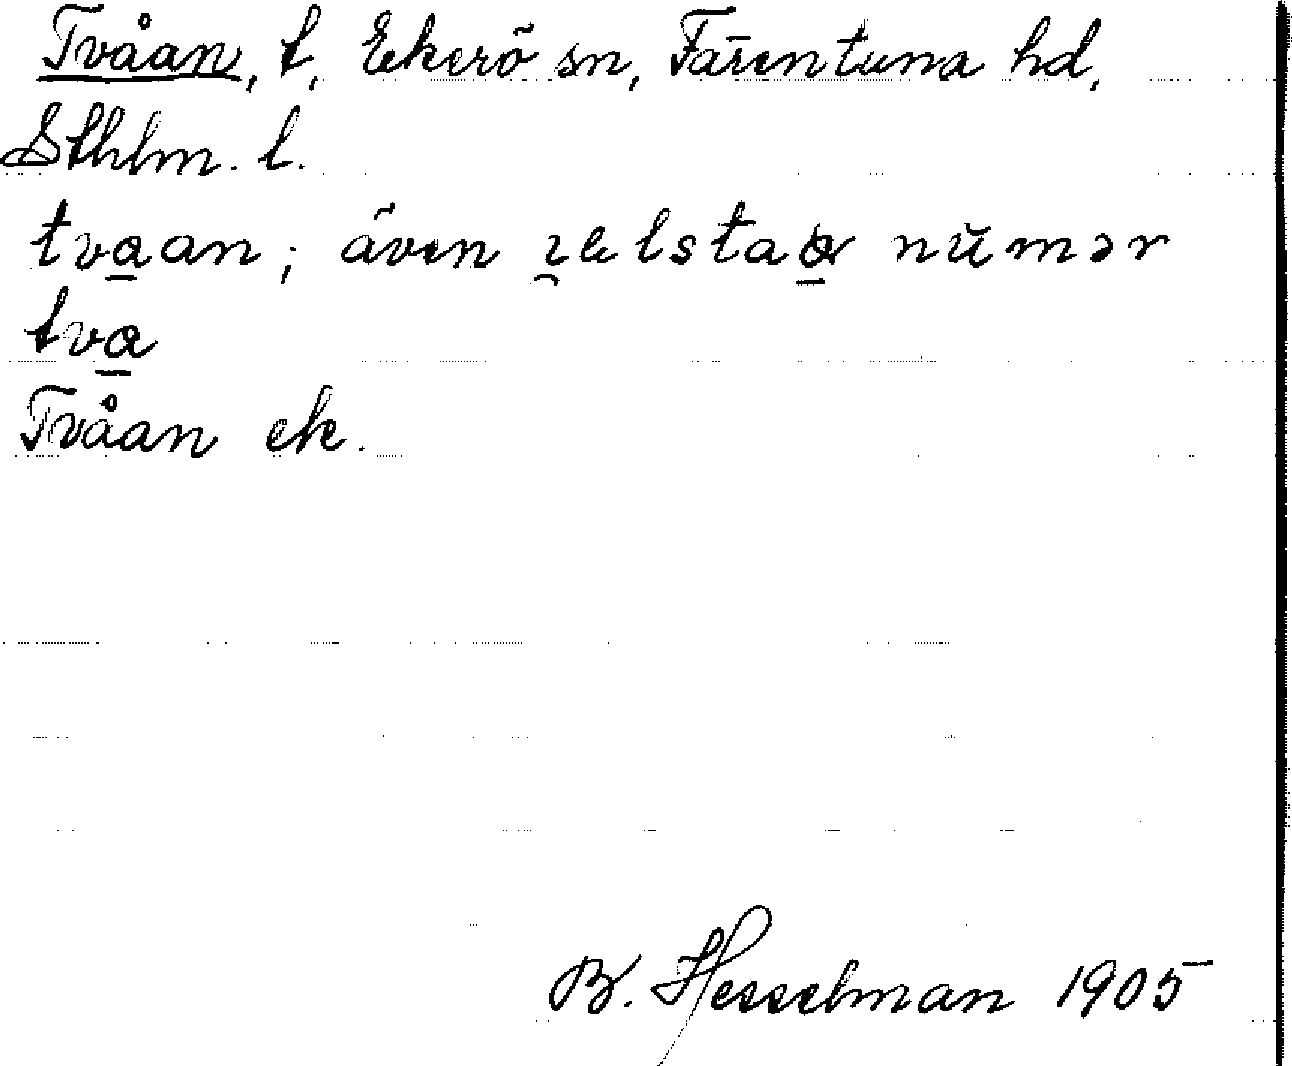 Tvåan, t, Ekerö sn, Färentuna hd,
Sthlm. l.
tvaan; även numər
tva
Tvåan ek.
B. Hesselman 1905